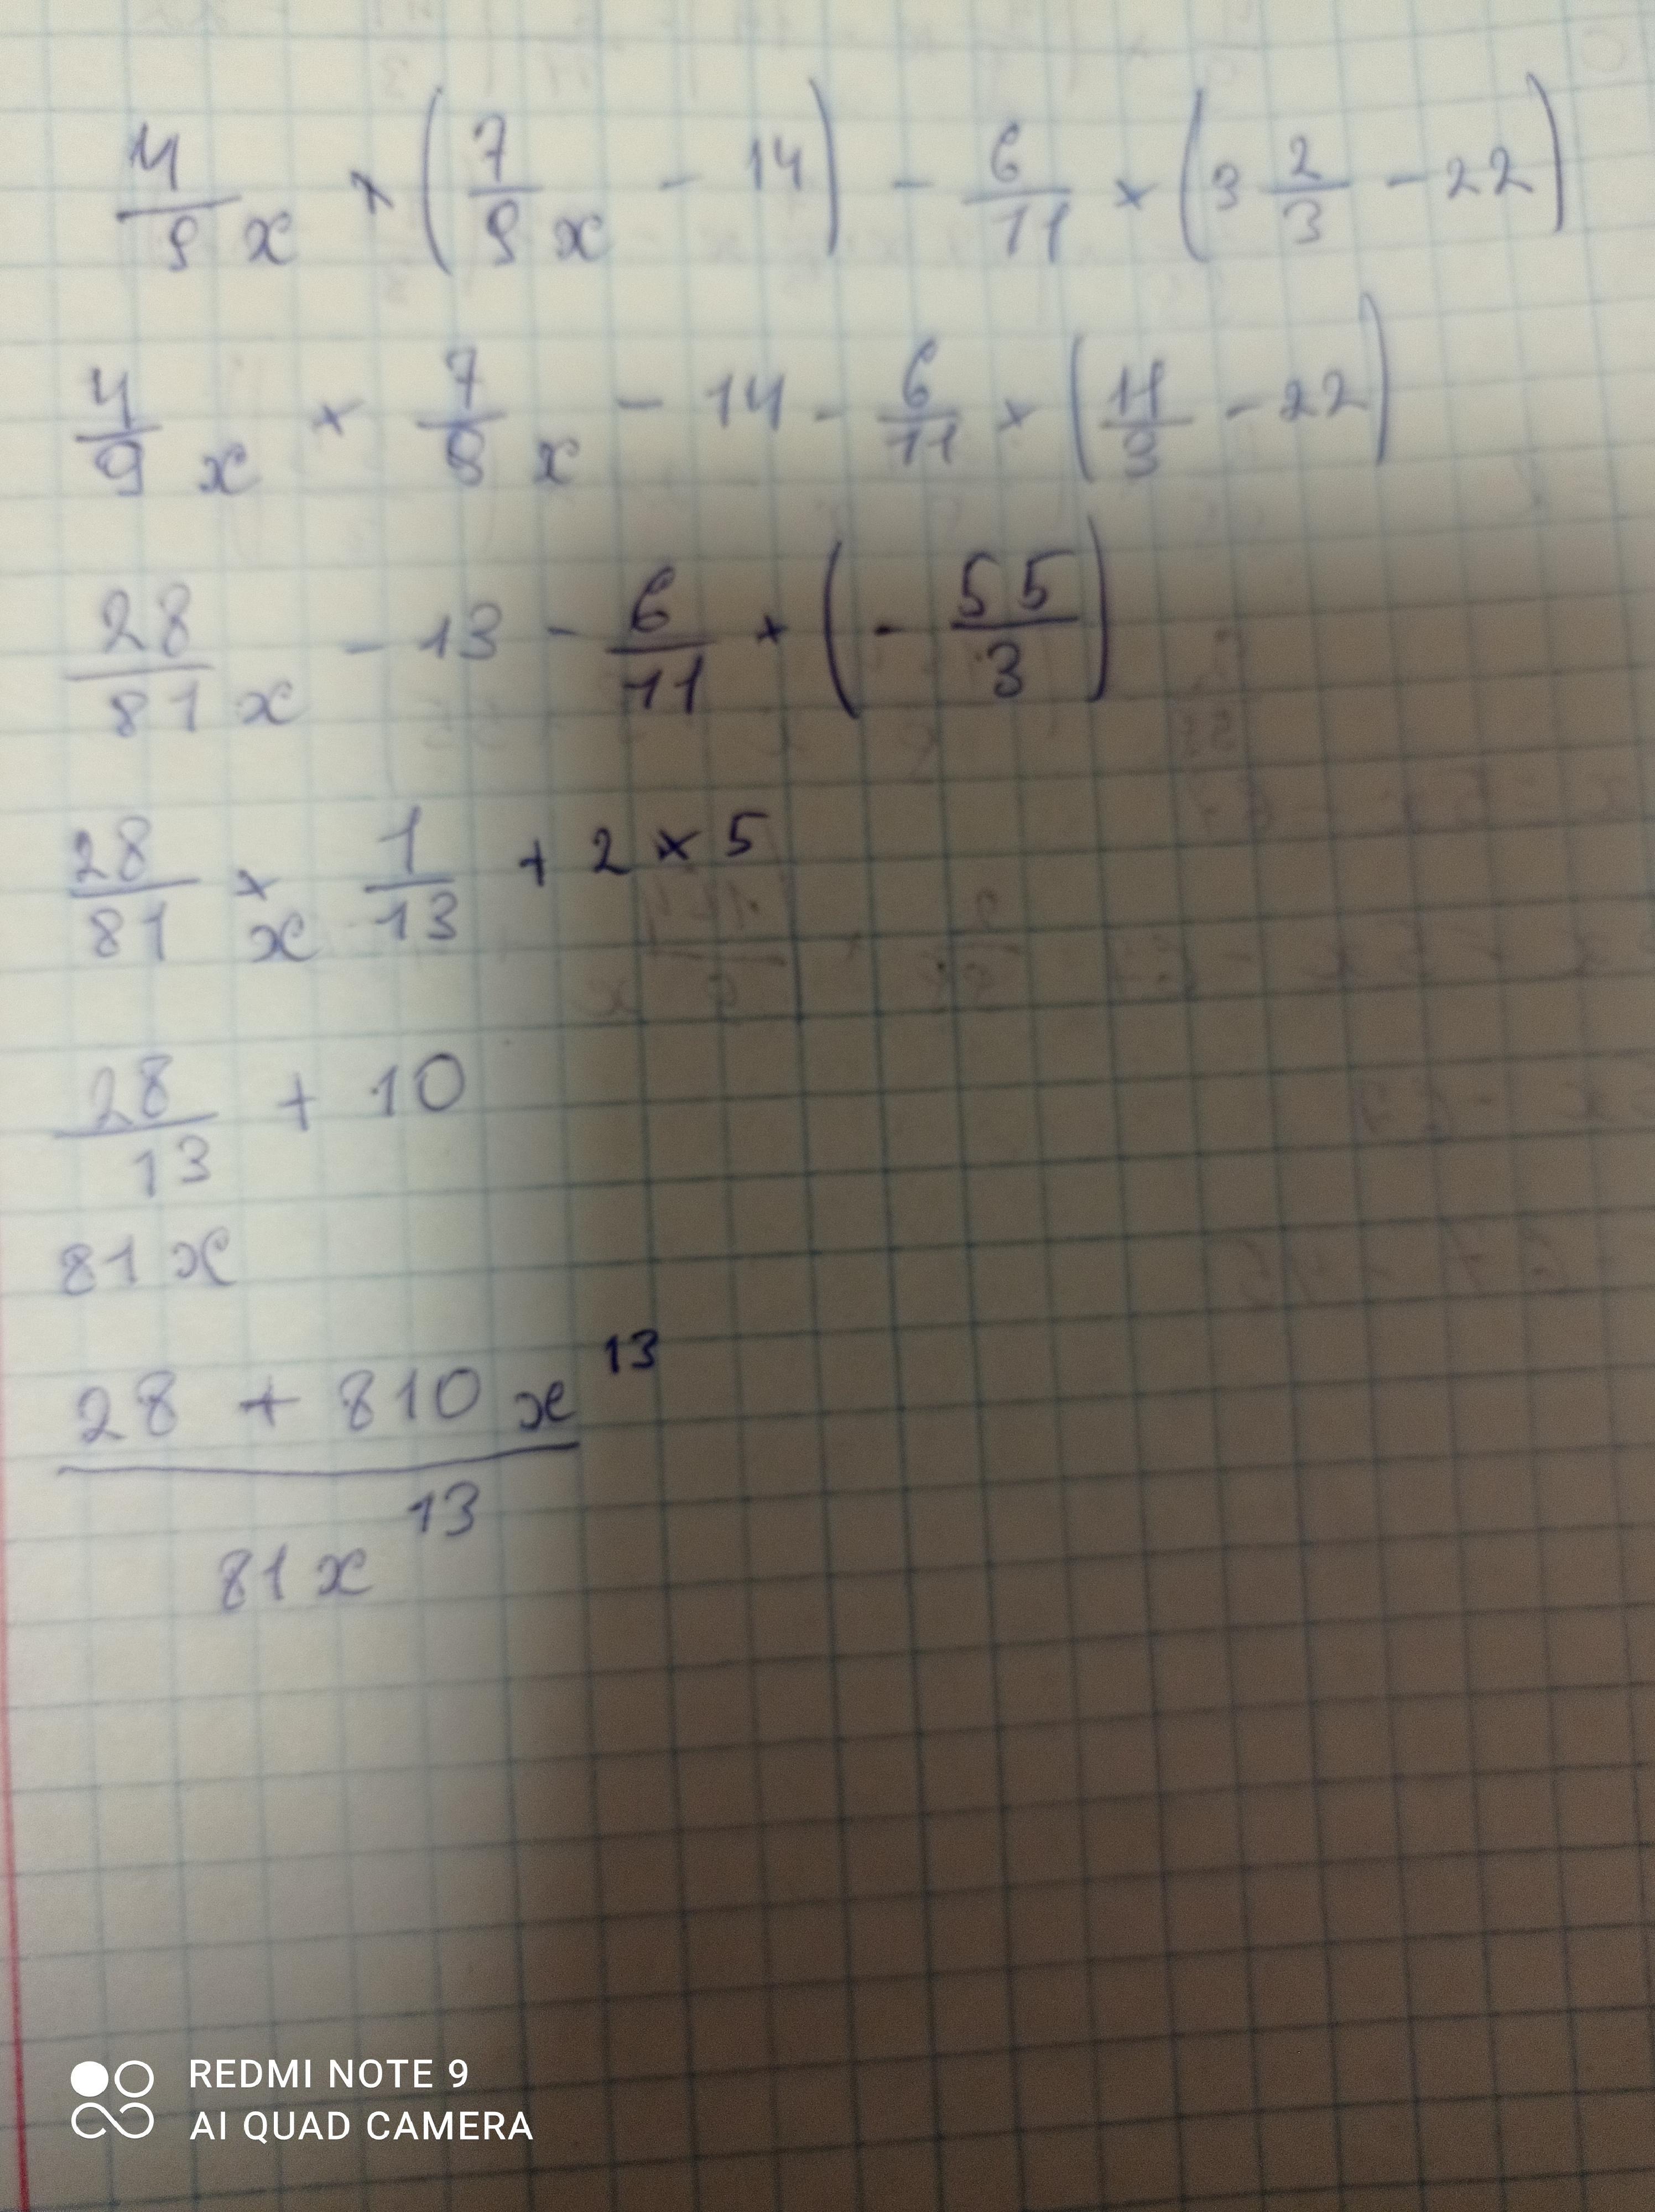 4/9x × (7/9x - 14) - 6/11 × (3 2/3 - 22)
4/9 x × 7/9 x - 14 - 6/11 × (11/3 - 22)
28/81x - 13 - 6/11 × (- 55/3)
28/81 x × 1/13 + 2 × 5
28/13 + 10
81x
28 + 810x^13
81x^13
REDMI NOTE 9
AI QUAD CAMERA